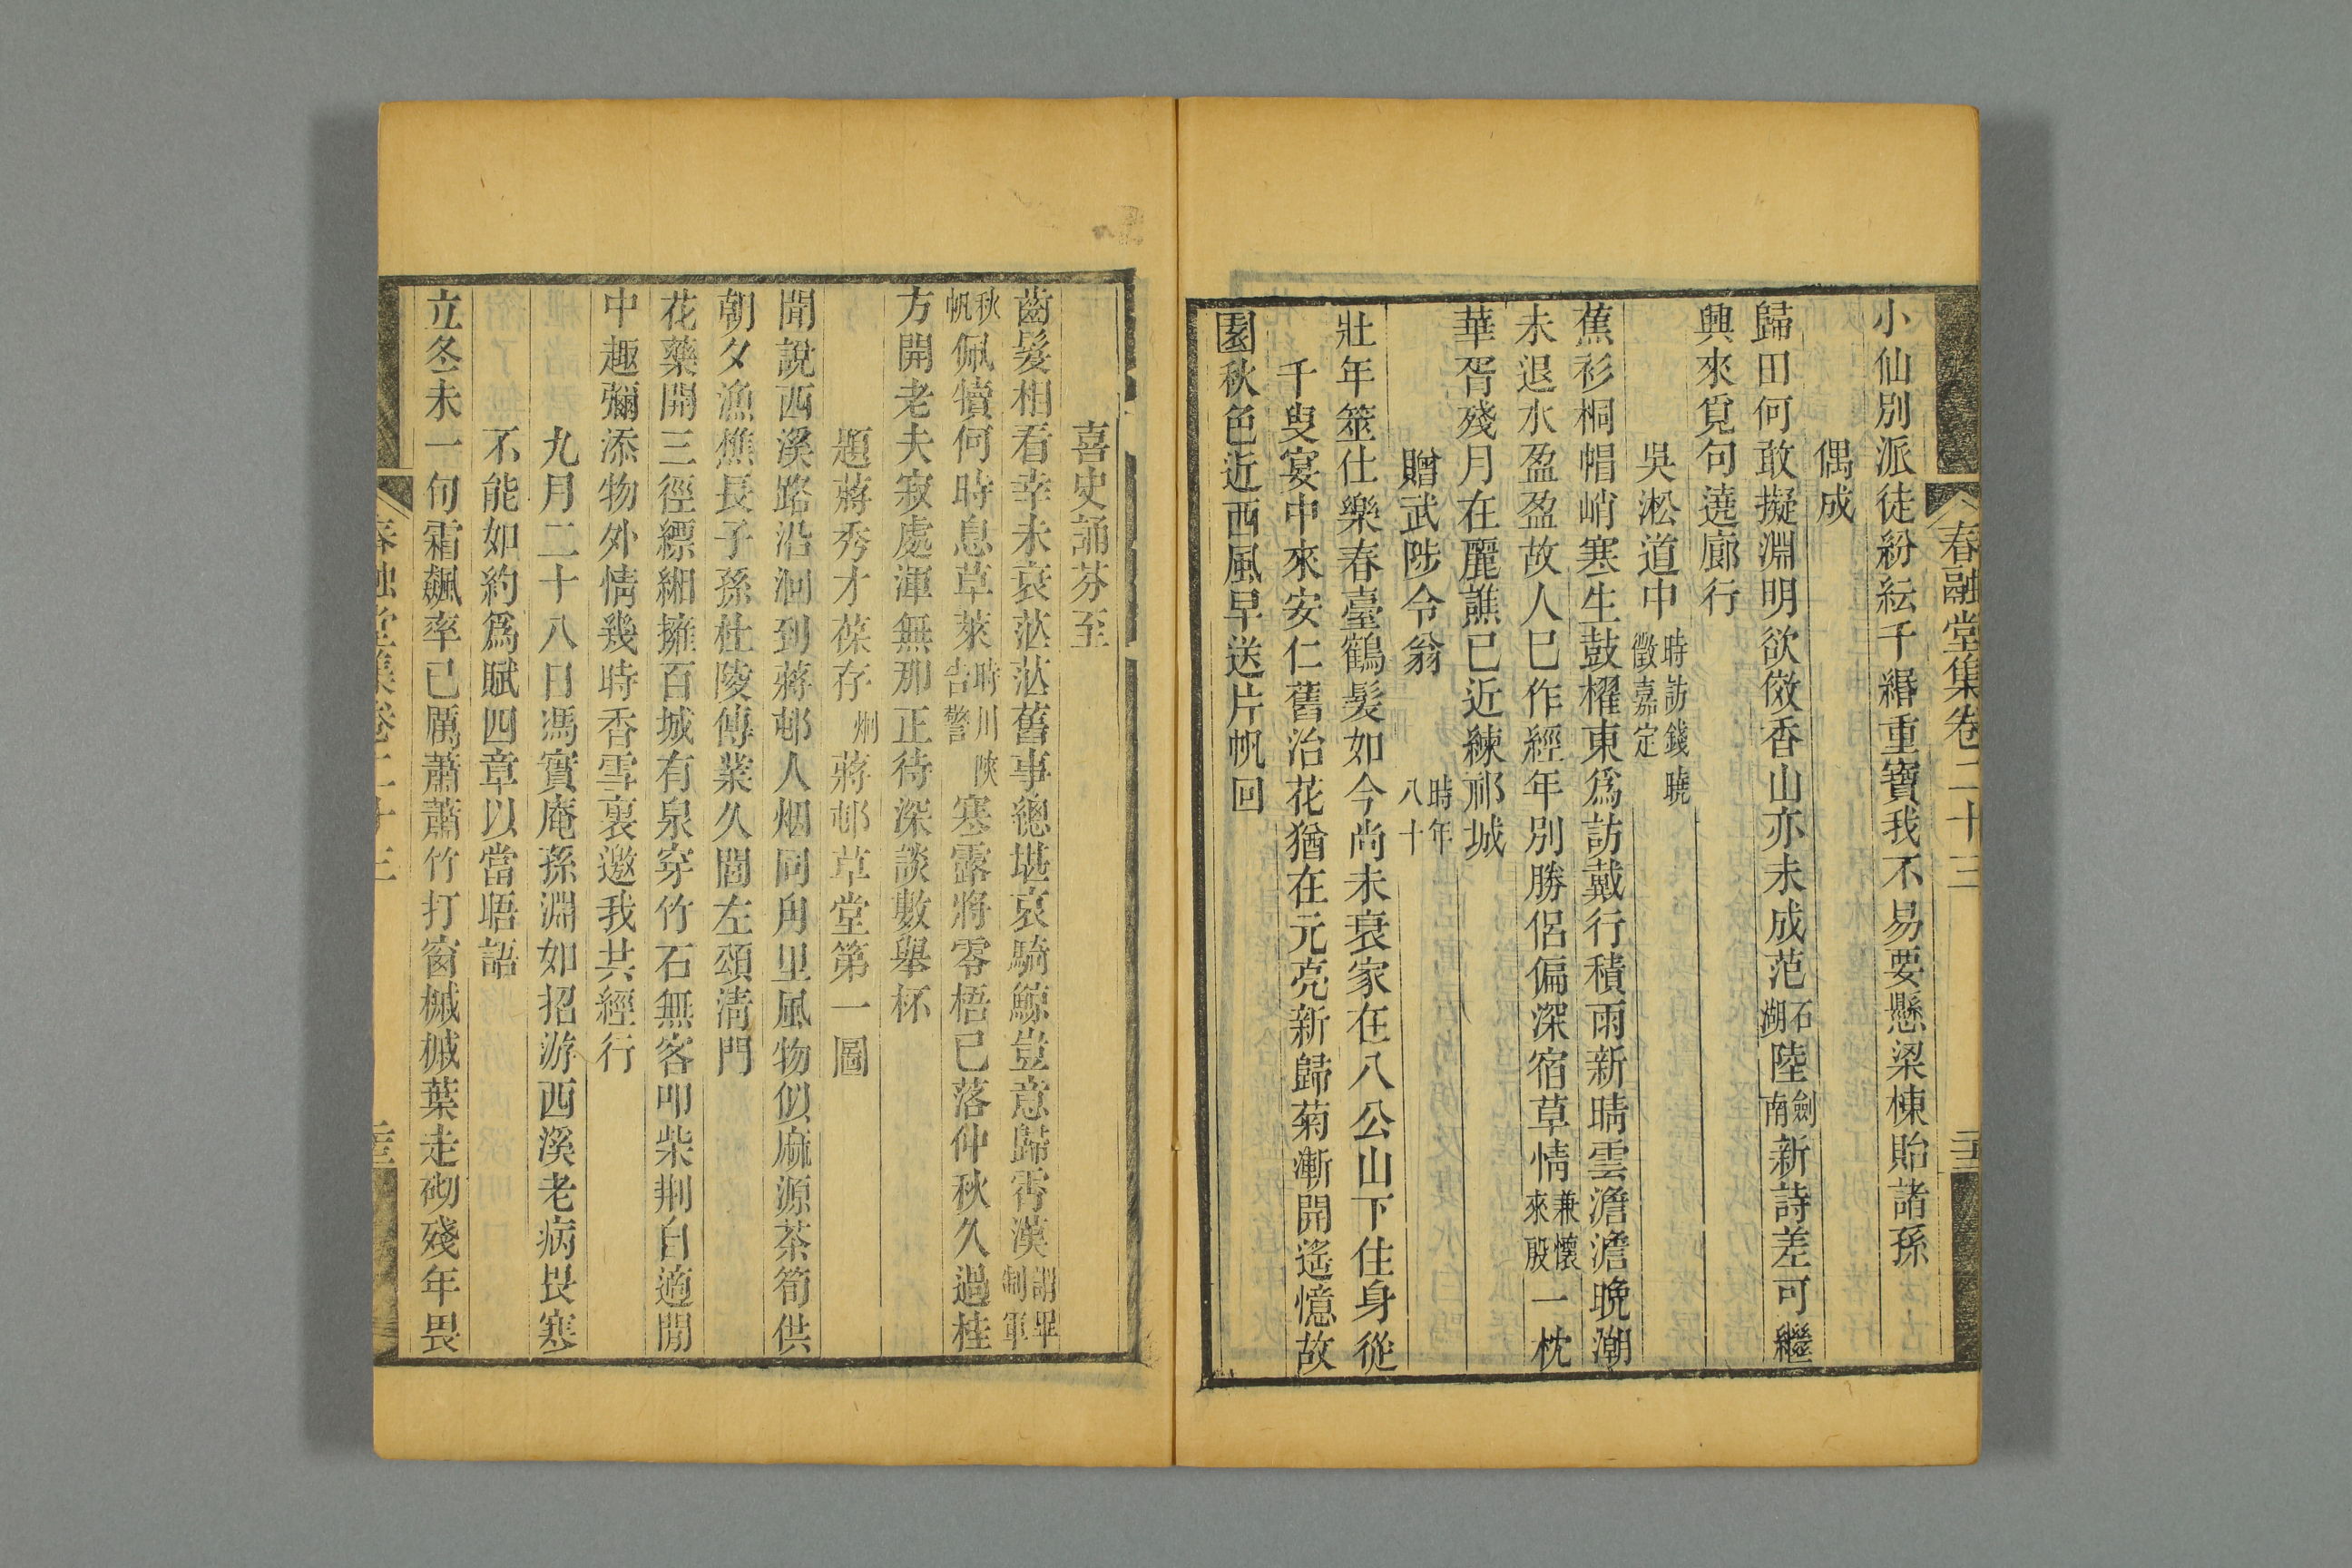 春融堂集卷二十三
小仙別派徒紛紜千緡重寶我不易要懸梁棟貽諸孫
偶成
歸田何敢擬淵明欲傚香山亦未成范石湖陸劍南新詩差可繼
興來覓句遶廊行
吳淞道中時訪錢曉徵嘉定
蕉衫桐帽峭寒生鼓櫂東爲訪戴行積雨新晴雲澹澹晚潮
未退水盈盈故人已作經年別勝侶偏深宿草情兼懷來殷一枕
華胥殘月在麗譙已近練祁城
贈武陟令翁時年八十
壯年筮仕樂春臺鶴髮如今尚未衰家在八公山下住身從
千叟宴中來安仁舊治花猶在元亮新歸菊漸開遙憶故
園秋色近西風早送片帆回
喜史誦芬至
齒髮相看幸未衰茫茫舊事總堪哀騎鯨豈意歸霄漢謂畢制軍
秋帆佩犢何時息草萊時川陝告警寒露將零梧已落仲秋久過桂
方開老夫寂處渾無那正待深談數舉杯
題蔣秀才葆存炯蔣邨草堂第一圖
聞說西溪路沿洄到蔣邨人烟同甪里風物似麻源茶筍供
朝夕漁樵長子孫杜陵傳業久閭左頌清門
花藥開三徑縹緗擁百城有泉穿竹石無客叩柴荆自適閒
中趣彌添物外情幾時香雪裏邀我共經行
九月二十八日馮實庵孫淵如招游西溪老病畏寒
不能如約爲賦四章以當晤語
立冬未一旬霜飆率已厲蕭蕭竹打窗槭槭葉走砌殘年畏
春融堂集卷二十三